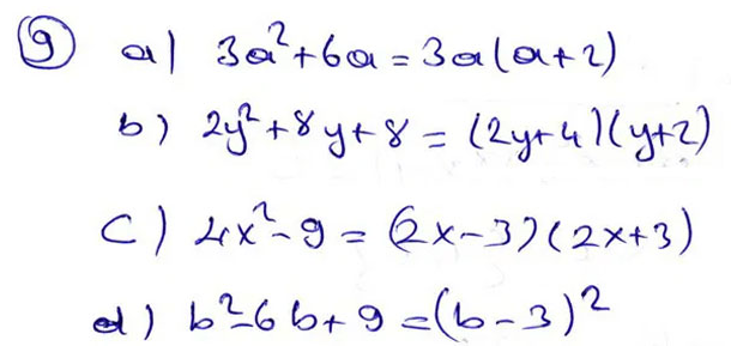 ⑨ a) 3a²+6a = 3a(a+2)
b) 2y²+8y+8 = (2y+4)(y+2)
c) 4x²-9 = (2x-3)(2x+3)
d) b²-6b+9 = (b-3)²